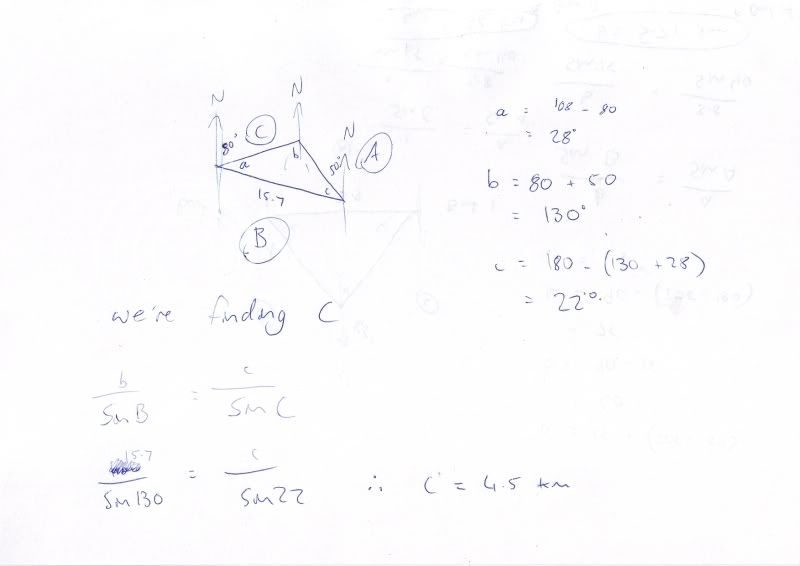 N
N
N
80°
C
b
50°
A
a
c
15.7
B
a = 108 - 80
= 28°
b = 80 + 50
= 130°
c = 180 - (130 + 28)
= 22°
we're finding C
b = c
Sin B Sin C
15.7 = c
Sin 130 Sin 22 ∴ C = 4.5 km